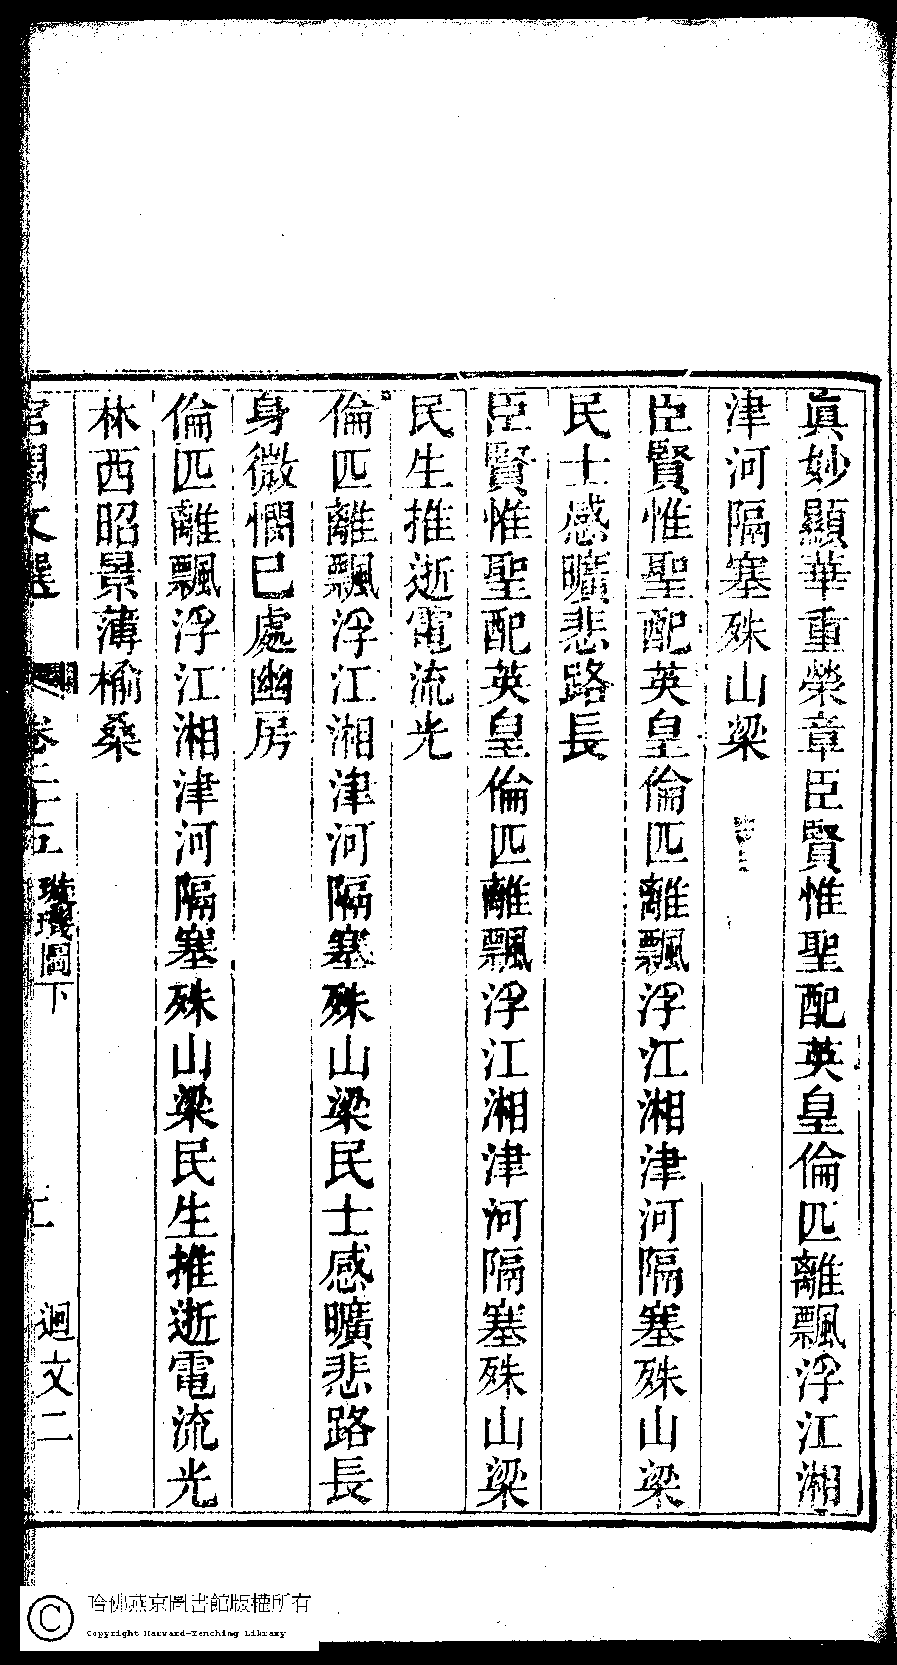 眞妙顯華重榮章臣賢惟聖配英皇倫匹離飄浮江湘
津河隔塞殊山梁
臣賢惟聖配英皇倫匹離飄浮江湘津河隔塞殊山梁
民士感曠悲路長
臣賢惟聖配英皇倫匹離飄浮江湘津河隔塞殊山梁
民生推逝電流光
倫匹離飄浮江湘津河隔塞殊山梁民士感曠悲路長
身微憫已處幽房
倫匹離飄浮江湘津河隔塞殊山梁民生推逝電流光
林西昭景薄榆桑
宮閨文選 卷二十五 璇璣圖下 二 迴文二
哈佛燕京圖書館版權所有
Copyright Harvard-Yenching Library